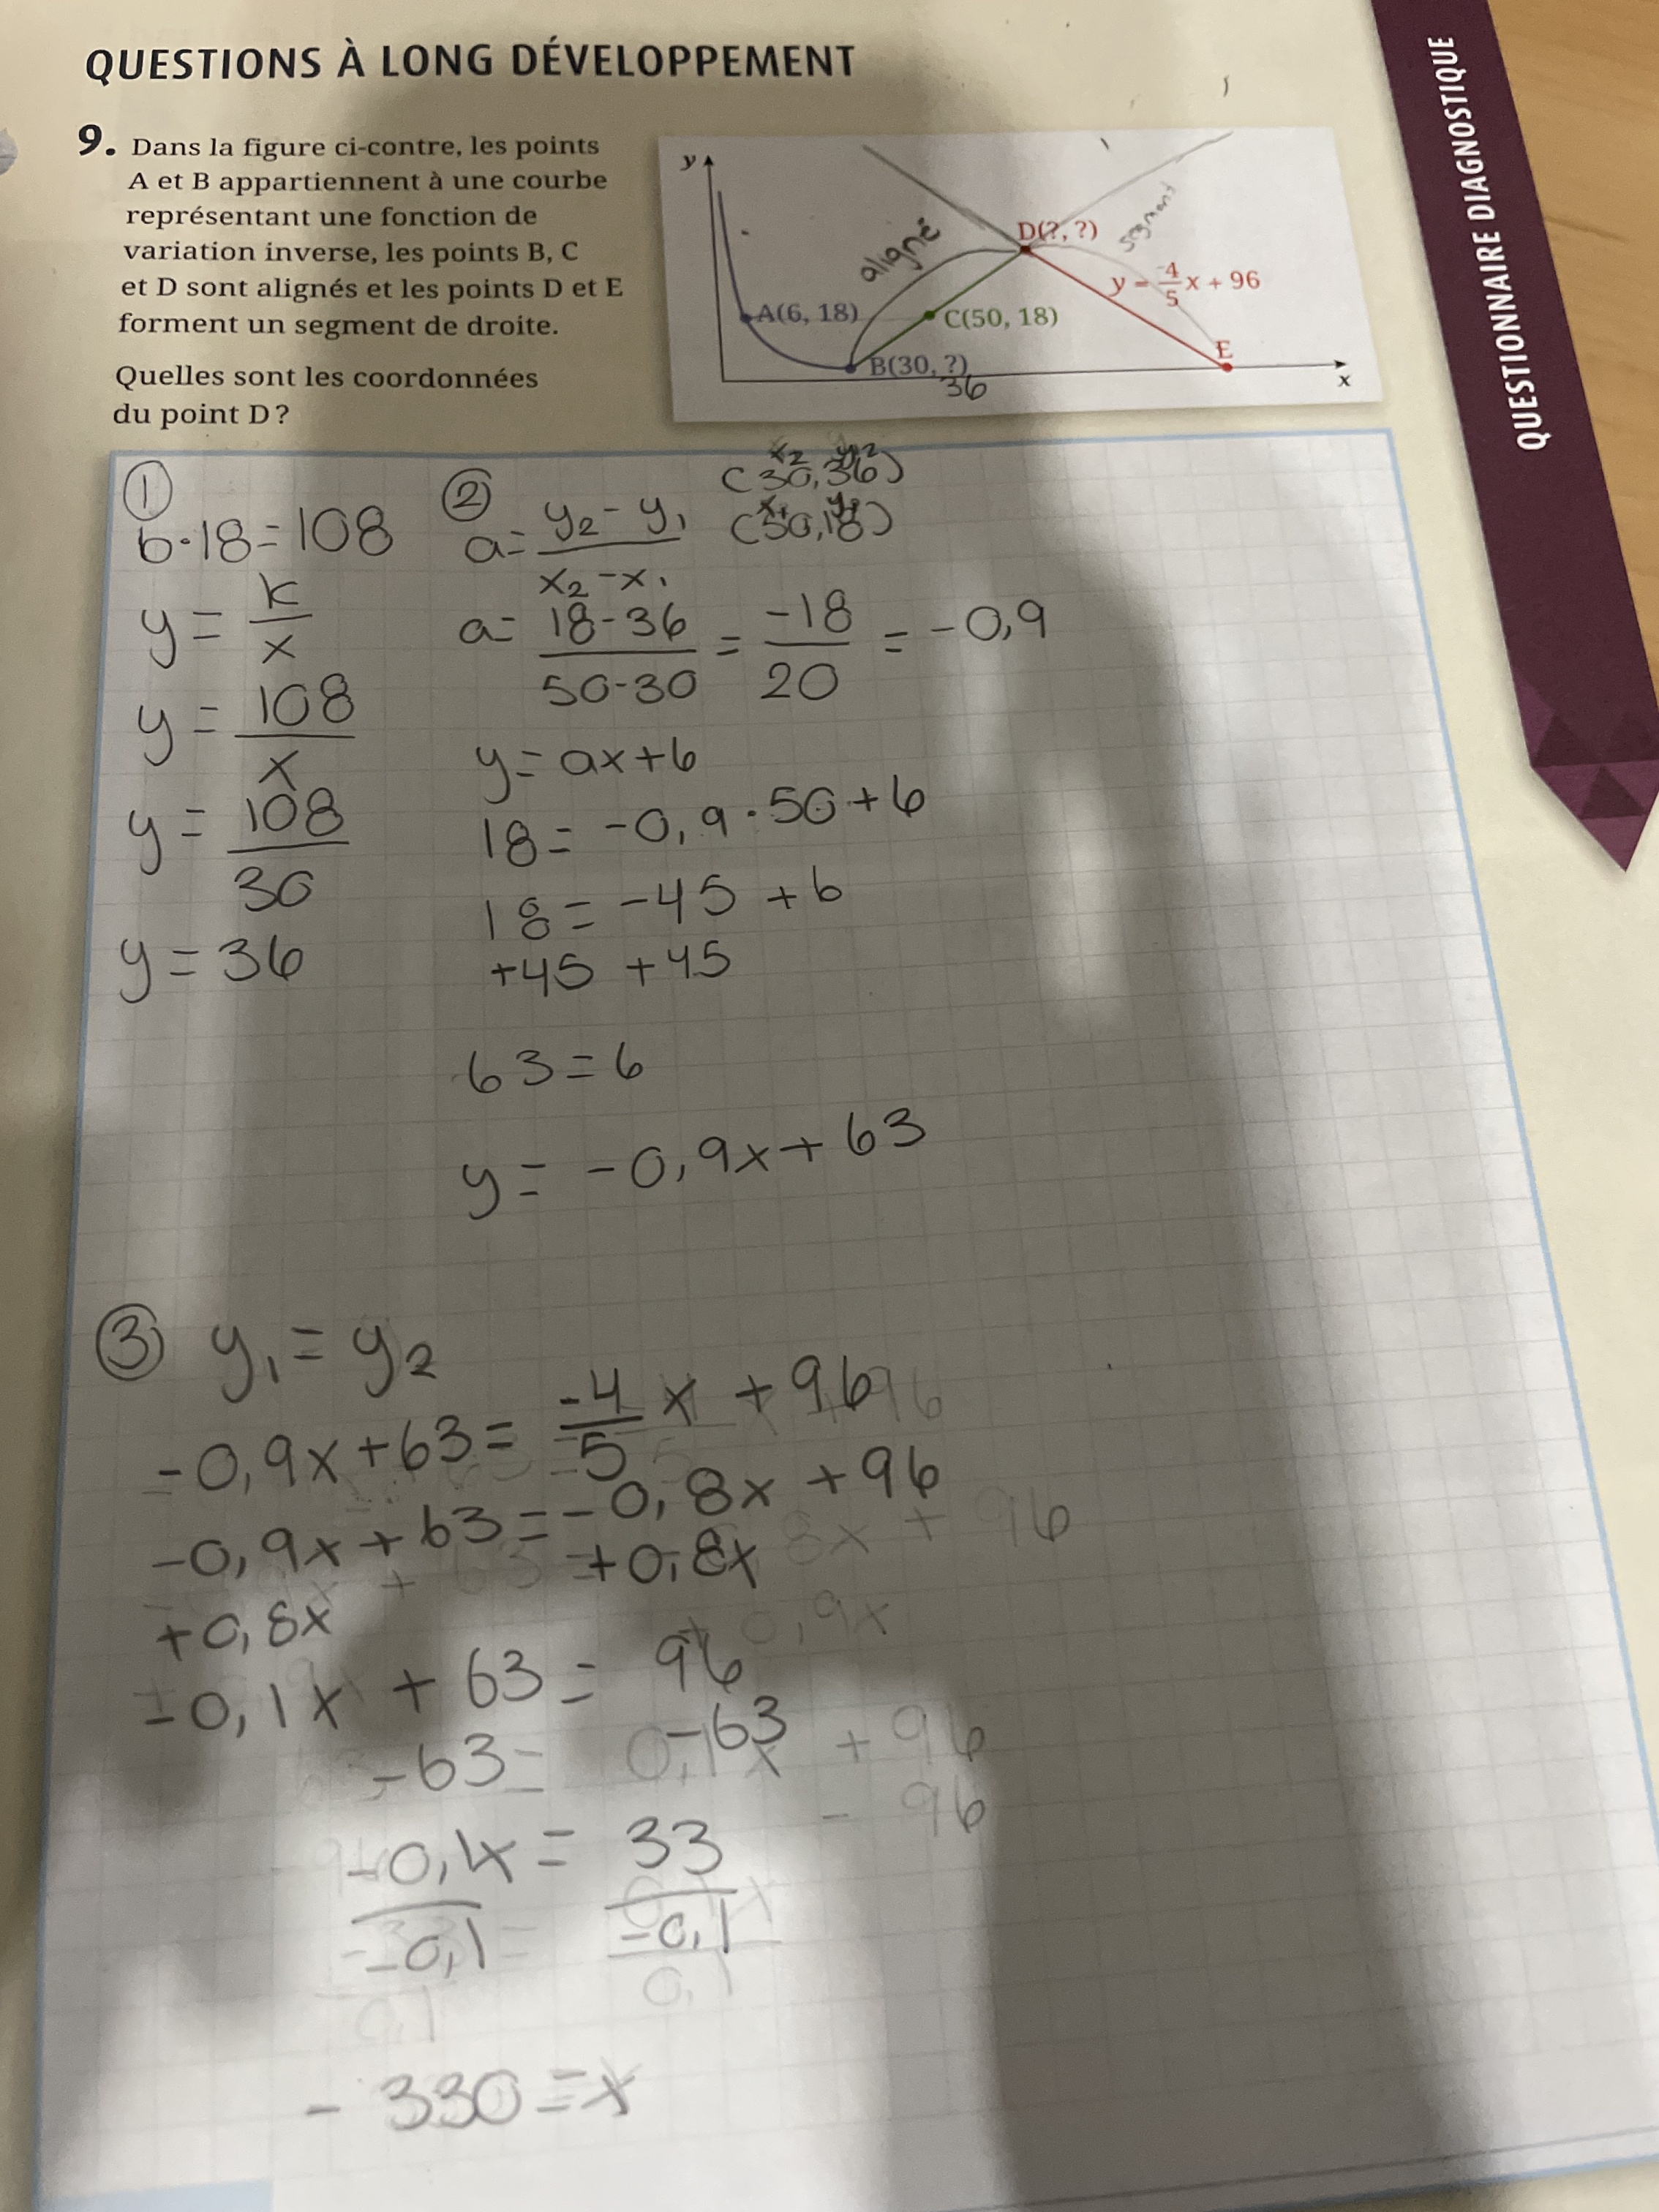 QUESTIONS À LONG DÉVELOPPEMENT
QUESTIONNAIRE DIAGNOSTIQUE
9. Dans la figure ci-contre, les points
A et B appartiennent à une courbe
représentant une fonction de
variation inverse, les points B, C
et D sont alignés et les points D et E
forment un segment de droite.
Quelles sont les coordonnées
du point D?
y
aligné
D(?, ?)
segment
y = -4/5 x + 96
A(6, 18)
C(50, 18)
B(30, ?)
36
E
x
①
6·18=108
y = k/x
y = 108/x
y = 108/30
y = 36
②
a= y₂-y₁ / x₂-x₁
x₂ y₂
(30,36)
x₁ y₁
(50,18)
a= 18-36 / 50-30 = -18/20 = -0,9
y = ax+b
18= -0,9·50+b
18= -45 +b
+45 +45
63=b
y = -0,9x+63
③ y₁ = y₂
-0,9x+63= -4/5 x +96
-0,9x+63=-0,8x+96
+0,8x +0,8x
-0,1x + 63 = 96
-63= -63
-0,1x = 33
-0,1 -0,1
-330=x